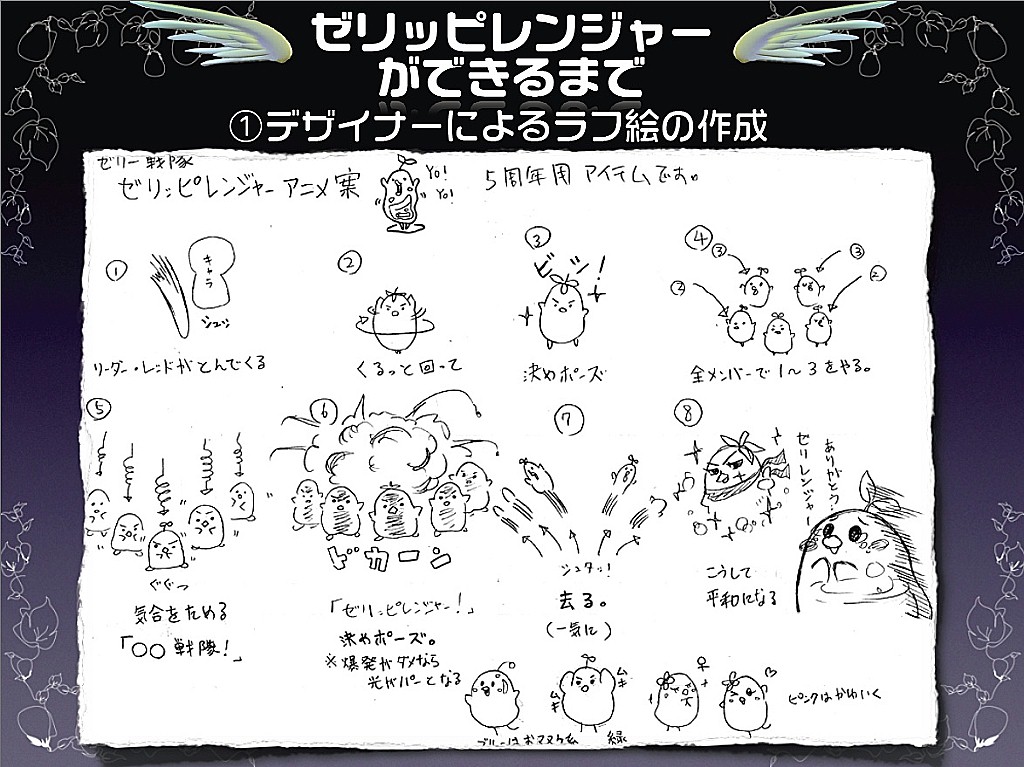 ゼリッピレンジャー
ができるまで
①デザイナーによるラフ絵の作成
ゼリー戦隊
ゼリッピレンジャーアニメ案
Yo!
Yo!
5周年用アイテムです。
①
キャラ
シュッ
リーダー・レッドがとんでくる
②
くるっと回って
③
ビシ!
決めポーズ
④
③
③
②
②
全メンバーで1〜3をやる。
⑤
ぐぐっ
気合をためる
「○○戦隊!」
⑥
ドカーン
「ゼリッピレンジャー!」
決めポーズ。
※爆発がダメなら
光がパーとなる
⑦
シュタッ!
去る。
(一気に)
⑧
ありがとう…
ゼリレンジャー
こうして
平和になる
ブルーはおマヌケ
ムキ
ムキ
緑
♀
ピンクはかわいく